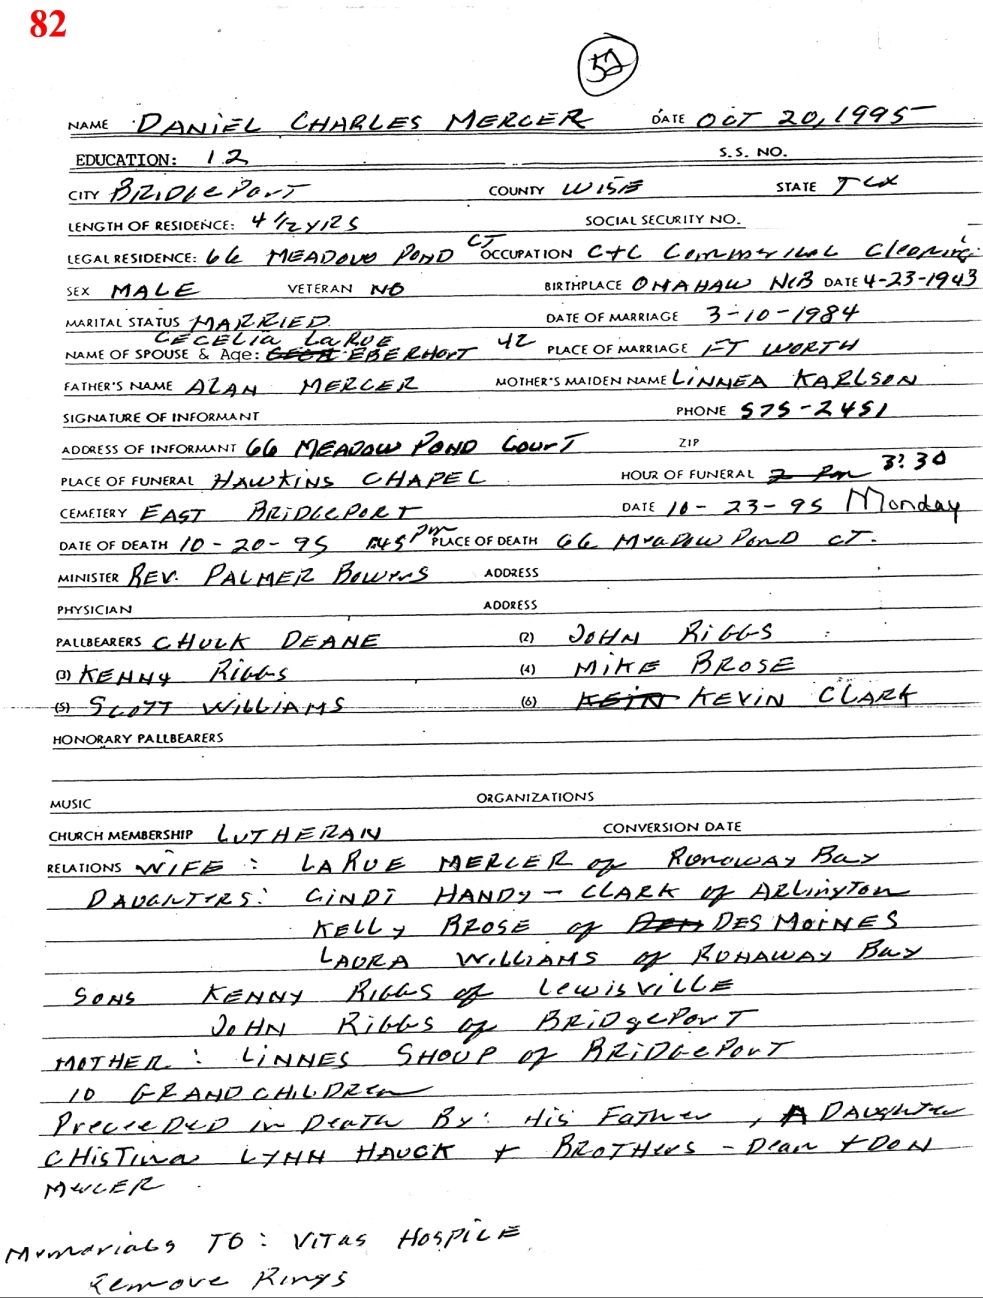 82
52
NAME DANIEL CHARLES MERCER DATE OCT 20, 1995
EDUCATION: 12 S.S. NO.
CITY BRIDGEPORT COUNTY WISE STATE TEX
LENGTH OF RESIDENCE: 4 1/2 YRS SOCIAL SECURITY NO.
LEGAL RESIDENCE: 66 MEADOW POND CT OCCUPATION C+C Commerical Cleaning
SEX MALE VETERAN NO BIRTHPLACE OMAHAW NEB DATE 4-23-1943
MARITAL STATUS MARRIED DATE OF MARRIAGE 3-10-1984
CECELIA LaRUE
NAME OF SPOUSE & Age: EBERHART 42 PLACE OF MARRIAGE FT WORTH
FATHER'S NAME ALAN MERCER MOTHER'S MAIDEN NAME LINNEA KARLSON
SIGNATURE OF INFORMANT PHONE 575-2451
ADDRESS OF INFORMANT 66 MEADOW POND COURT ZIP
PLACE OF FUNERAL HAWKINS CHAPEL HOUR OF FUNERAL 2 PM 3:30
CEMETERY EAST BRIDGEPORT DATE 10-23-95 Monday
DATE OF DEATH 10-20-95 1:45 PM PLACE OF DEATH 66 MEADOW POND CT.
MINISTER REV. PALMER Bowers ADDRESS
PHYSICIAN ADDRESS
PALLBEARERS CHUCK DEANE (2) JOHN RIGGS
(3) KENNY RIGGS (4) MIKE BROSE
(5) SCOTT WILLIAMS (6) KEVIN CLARK
HONORARY PALLBEARERS
MUSIC ORGANIZATIONS
CHURCH MEMBERSHIP LUTHERAN CONVERSION DATE
RELATIONS WIFE: LARUE MERCER of RUNAWAY BAY
DAUGHTERS: CINDI HANDY-CLARK of ARLINGTON
KELLY BROSE of DES MOINES
LAURA WILLIAMS of RUNAWAY BAY
SONS KENNY RIGGS of LEWISVILLE
JOHN RIGGS of BRIDGEPORT
MOTHER: LINNES SHOUP of BRIDGEPORT
10 GRANDCHILDREN
PRECEEDED in Death By: His Father, A DAUGHTER
CHISTINA LYNN HAUCK + BROTHERS - Dean + DON
MERCER
Memorials TO: VITAS HOSPICE
Remove Rings